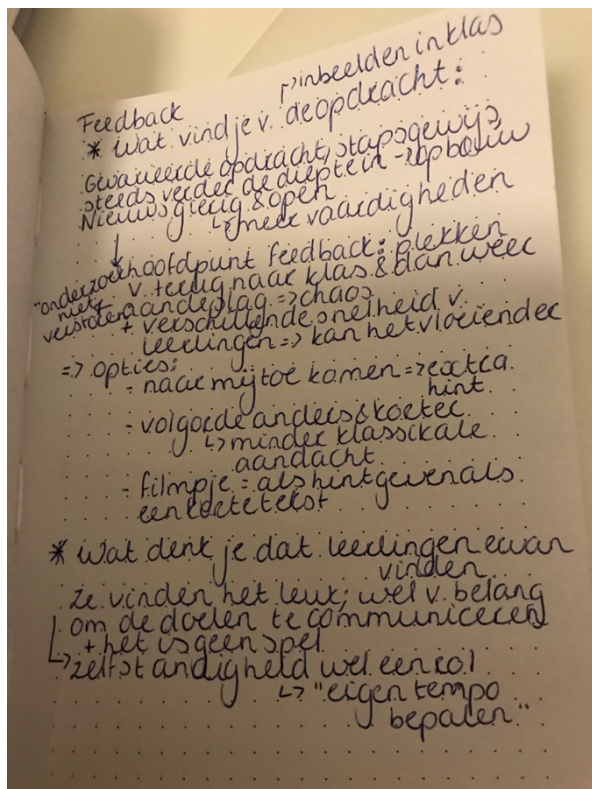 Feedback
↱ inbeelden in klas
* wat vind je v. de opdracht:
Gevarieerde opdracht, stapsgewijs
steeds verder de diepte in → opbouw
Nieuwsgierig & open
↳ meer vaardigheden
↓
hoofdpunt feedback: plekken
"onderzoek
v. terug naar klas & dan weer
niet
aan de slag => chaos
verstoren
+ verschillende snelheid v.
leerlingen => kan het vloeiender
=> opties:
- naar mij toe komen => extra
hint
- volgorde anders & korter
↳ minder klassikale
aandacht
- filmpje = als hint geven als
een korte tekst
* wat denk je dat leerlingen ervan
vinden
ze vinden het leuk; wel v. belang
om de doelen te communiceren
+ het is geen spel
↳ zelfstandigheid wel een rol
↳ "eigen tempo
bepalen"